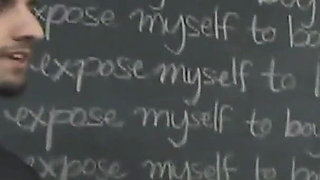 expose myself to bo
expose myself to b
expose myself to boy
expose myself to bo